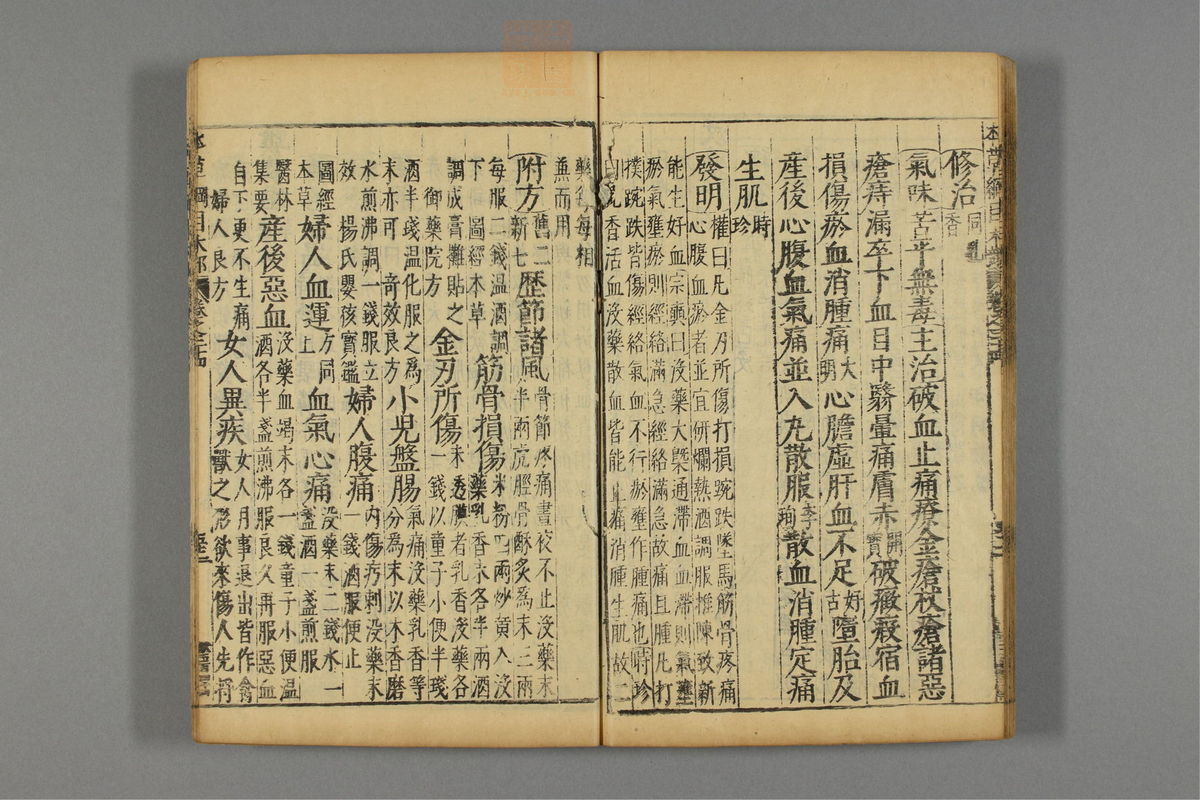 修治同乳香
氣味苦平無毒主治破血止痛療金瘡杖瘡諸惡
瘡痔漏卒下血目中翳暈痛膚赤開寶破癥瘕宿血
損傷瘀血消腫痛大明心膽虛肝血不足好古墮胎及
產後心腹血氣痛並入丸散服李珣散血消腫定痛
生肌時珍
發明權曰凡金刃所傷打損踠跌墜馬筋骨疼痛
心腹血瘀者並宜研爛熱酒調服推陳致新
能生好血宗奭曰沒藥大槩通滯血血滯則氣壅
瘀氣壅瘀則經絡滿急經絡滿急故痛且腫凡打
撲踠跌皆傷經絡氣血不行瘀壅作腫痛也時珍
曰乳香活血沒藥散血皆能止痛消腫生肌故二
藥每每相
兼而用
附方舊二新七歷節諸風骨節疼痛晝夜不止沒藥末半兩虎脛骨酥炙爲末三兩
每服二錢溫酒調下圖經本草筋骨損傷米粉四兩炒黃入沒藥乳香末各半兩酒
調成膏攤貼之御藥院方金刃所傷未透膜者乳香沒藥各一錢以童子小便半琖
酒半琖溫化服之爲末亦可奇效良方小兒盤腸氣痛沒藥乳香等分為末以木香磨
水煎沸調一錢服立效楊氏嬰孩寶鑑婦人腹痛內傷㽲刺沒藥末一錢酒服便止
圖經本草婦人血運方同上血氣心痛沒藥末二錢水一盞酒一盞煎服
醫林集要產後惡血沒藥血竭末各一錢童子小便溫酒各半盞煎沸服良久再服惡血
自下更不生痛婦人良方女人異疾女人月事退出皆作禽獸之形欲來傷人先將
本草綱目木部